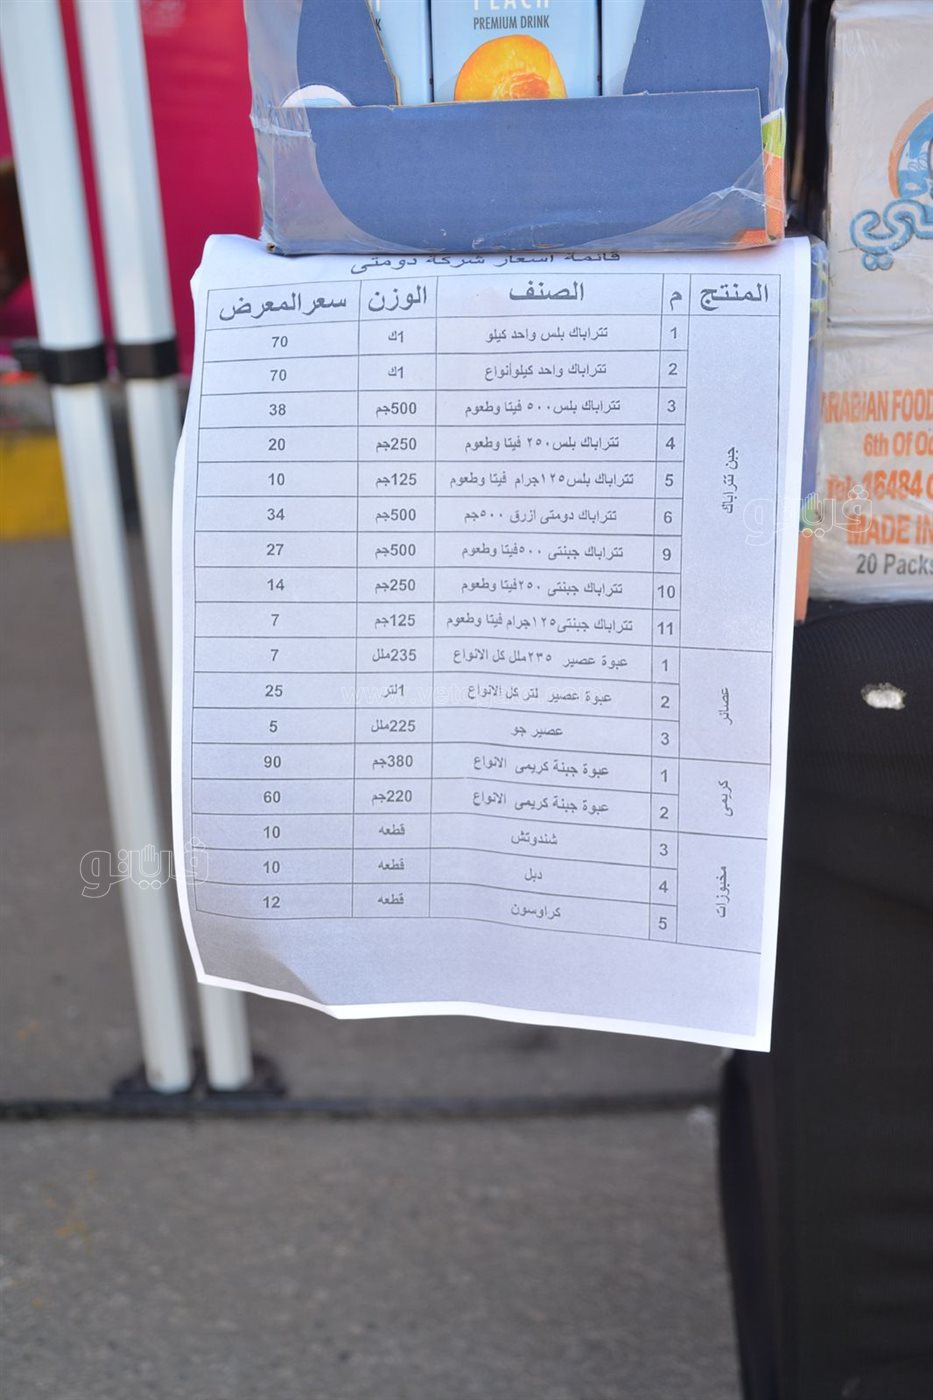 PEACH
PREMIUM DRINK
قائمة اسعار شركة دومتى
المنتج م الصنف الوزن سعر المعرض
جبن تتراباك
1 تتراباك بلس واحد كيلو 1ك 70
2 تتراباك واحد كيلوأنواع 1ك 70
3 تتراباك بلس٥٠٠ فيتا وطعوم 500جم 38
4 تتراباك بلس٢٥٠ فيتا وطعوم 250جم 20
5 تتراباك بلس١٢٥جرام فيتا وطعوم 125جم 10
6 تتراباك دومتى ازرق ٥٠٠جم 500جم 34
9 تتراباك جبنتى ٥٠٠فيتا وطعوم 500جم 27
10 تتراباك جبنتى ٢٥٠فيتا وطعوم 250جم 14
11 تتراباك جبنتى١٢٥جرام فيتا وطعوم 125جم 7
عصائر
1 عبوة عصير ٢٣٥ملل كل الانواع 235ملل 7
2 عبوة عصير لتر كل الانواع 1لتر 25
3 عصير جو 225ملل 5
كريمى
1 عبوة جبنة كريمى الانواع 380جم 90
2 عبوة جبنة كريمى الانواع 220جم 60
مخبوزات
3 شندوتش قطعه 10
4 دبل قطعه 10
5 كراوسون قطعه 12
ARABIAN FOOD
6th Of Oc
Tel: 16484
MADE IN
20 Packs
فيتو
فيتو